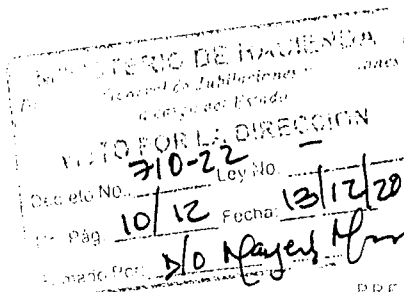 MINISTERIO DE HACIENDA
General de Jubilaciones
a cargo del Estado
VISTO POR LA DIRECCIÓN
Decreto No. 710-22 Ley No. —
Pág. 10/12 Fecha: 13/12/20
Por: D/O
PRE